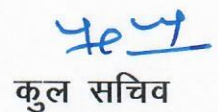 कुल सचिव